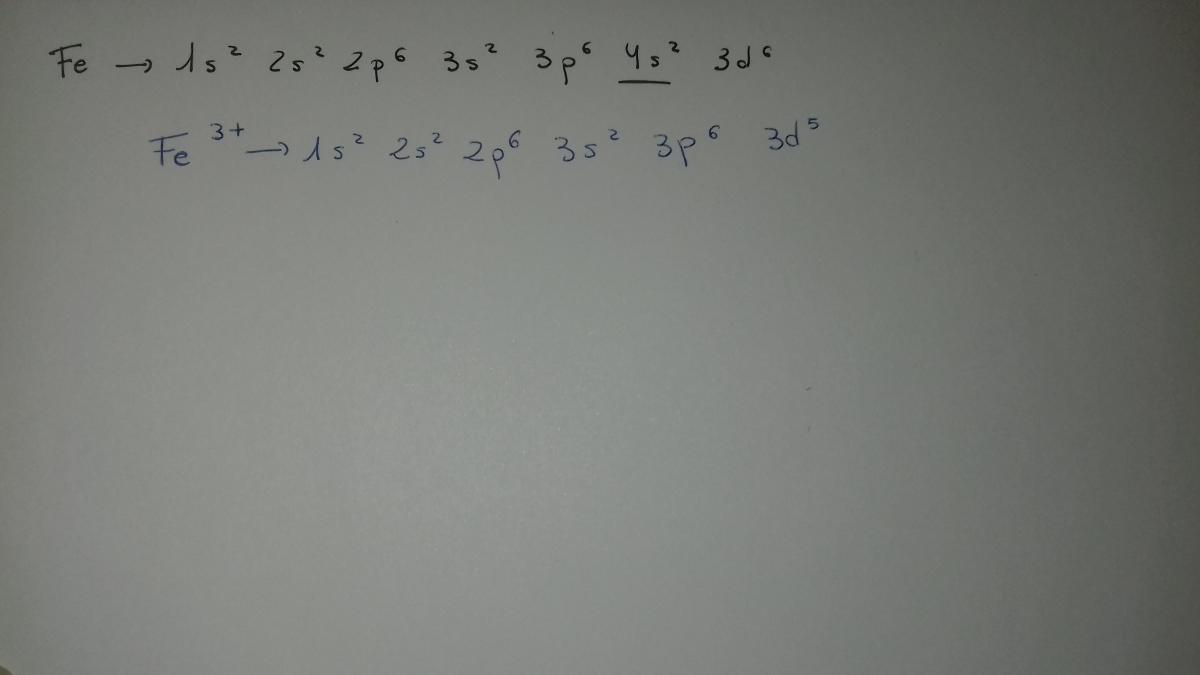 Fe → 1s² 2s² 2p⁶ 3s² 3p⁶ 4s² 3d⁶
Fe³⁺ → 1s² 2s² 2p⁶ 3s² 3p⁶ 3d⁵